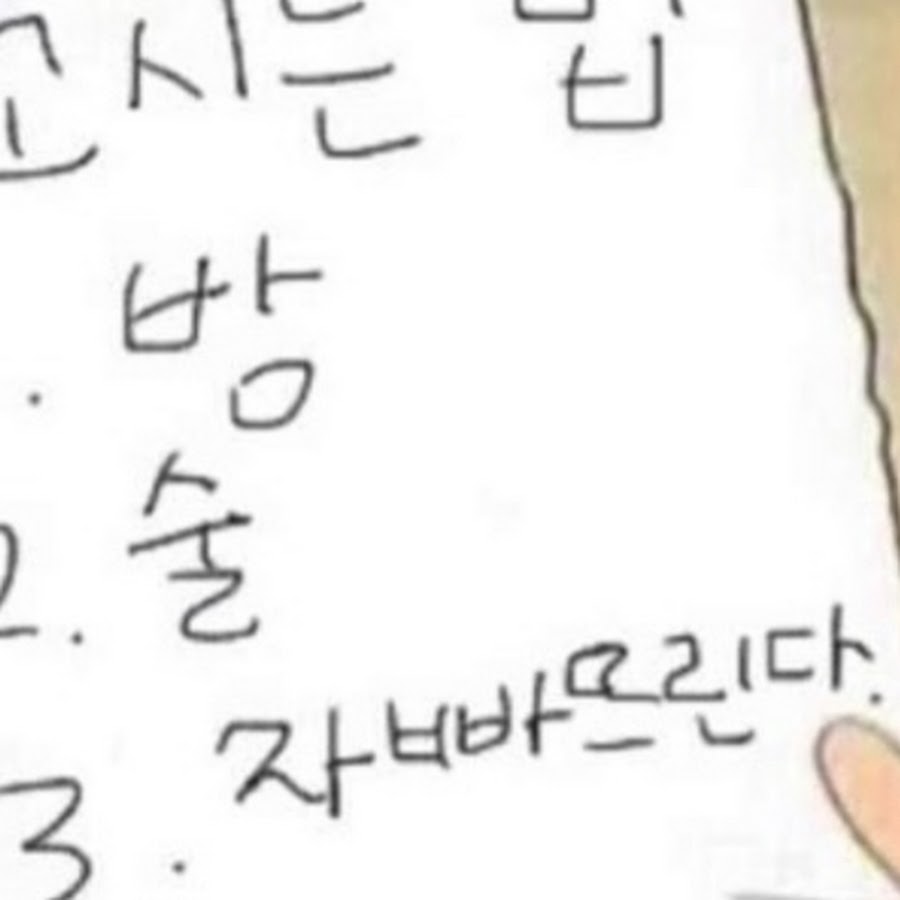 시는 법
. 방
2. 술
3. 자빠뜨린다.